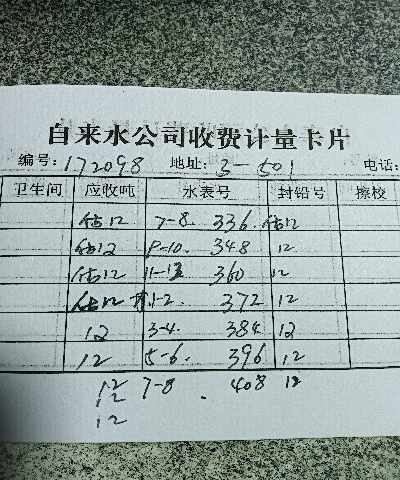 自来水公司收费计量卡片
编号:172098 地址:3-501 电话:
卫生间 应收吨 水表号 封铅号 擦校
估12 7-8. 336. 估12
估12 9-10. 348 12
估12 11-12 360 12
估12 1-2. 372 12
12 3-4. 384 12
12 5-6. 396 12
12 7-8 . 408 12
12